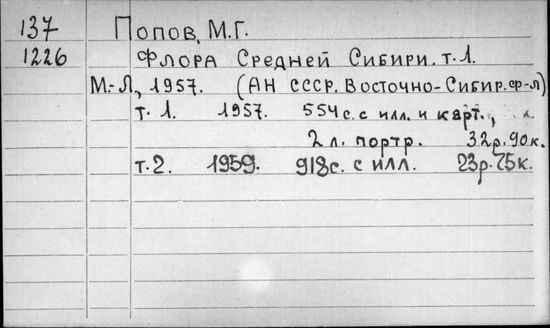 137 Попов, М.Г.
1226 Флора Средней Сибири. т.1.
М.-Л., 1957. (АН СССР. Восточно-Сибир. ф-л)
т. 1. 1957. 554с. с илл. и карт.,
2 л. портр. 32р.90к.
т.2. 1959. 918с. с илл. 23р.75к.